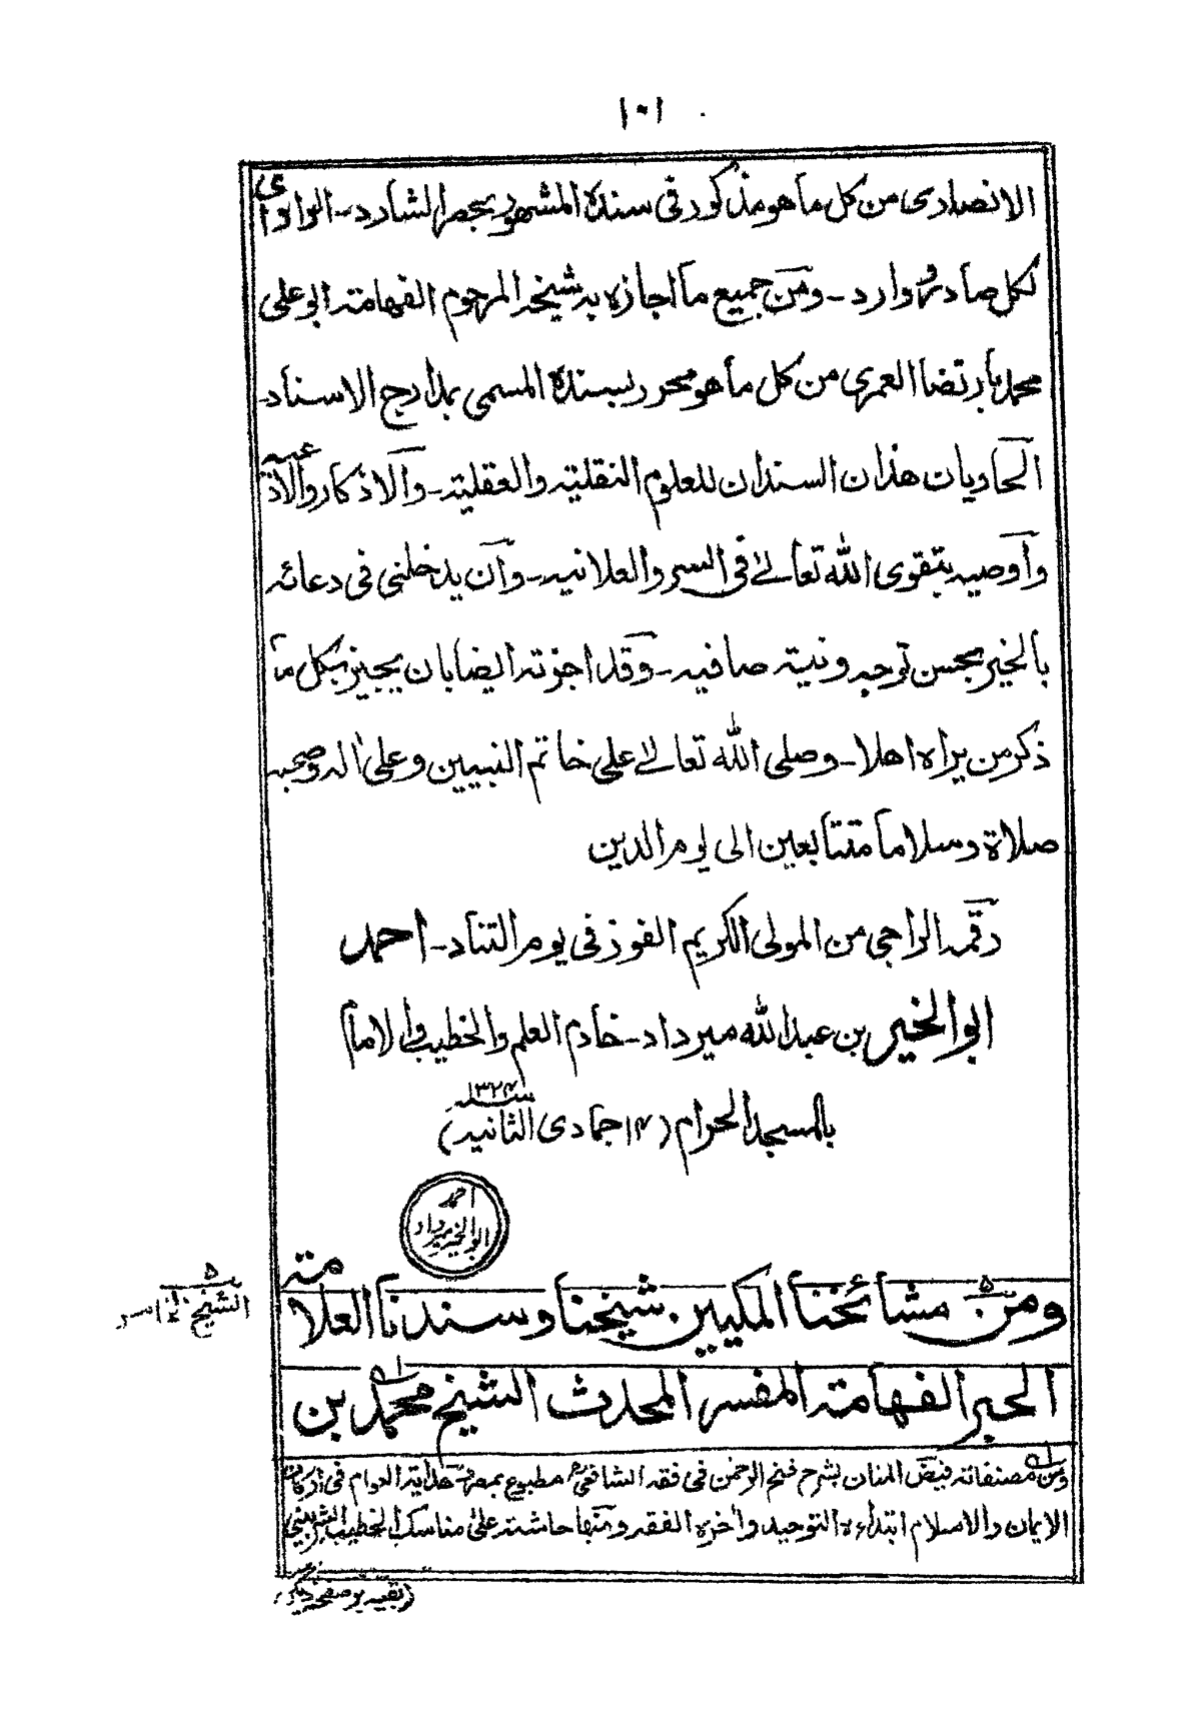 ١٠١
الانصاری من کل ما هو مذکور فی سنده المشهور بحصر الشارد۔ الوافی
لکل صادر و وارد۔ ومن جمیع ما اجازه به شیخه المرحوم الفهامة ابو علی
محمد بارتضا العمری من کل ما هو محرر بسنده المسمی بمدارج الاسناد۔
الحاویان هذان السندان للعلوم النقلیة والعقلیة۔ والاذکار والادعیه
وأوصیه بتقوی الله تعالیٰ فی السر والعلانیه۔ وأن یدخلنی فی دعائه
بالخیر بحسن توجه ونیة صافیه۔ وقد اجزته ایضا بان یجیز بکل ما
ذکر من یراه اهلا۔ وصلی الله تعالیٰ علی خاتم النبیین وعلی اٰله وصحبه
صلاة وسلاما متتابعین الی یوم الدین
رقمه الراجی من المولی الکریم الفوز فی یوم التناد۔ احمد
ابو الخیر بن عبد الله میرداد۔ خادم العلم والخطیب والامام
بالمسجد الحرام (١٤ جمادی الثانیه) سنه ١٣٢٤
احمد
ابو الخیر میرداد
ومن مشائخنا المکیین شیخنا وسندنا العلامة
الشیخ الخامس
الحبر الفهامة المفسر المحدث الشیخ محمد بن
ومن مصنفاته فیض المنان بشرح فتح الرحمن فی فقه الشافعی مطبوع بمصر هدایة العوام فی ارکان
الایمان والاسلام ابتداءه التوحید وأخره الفقه ومنها حاشیة علی مناسک الخطیب الشربینی
(بقیه بر صفحه دیگر)